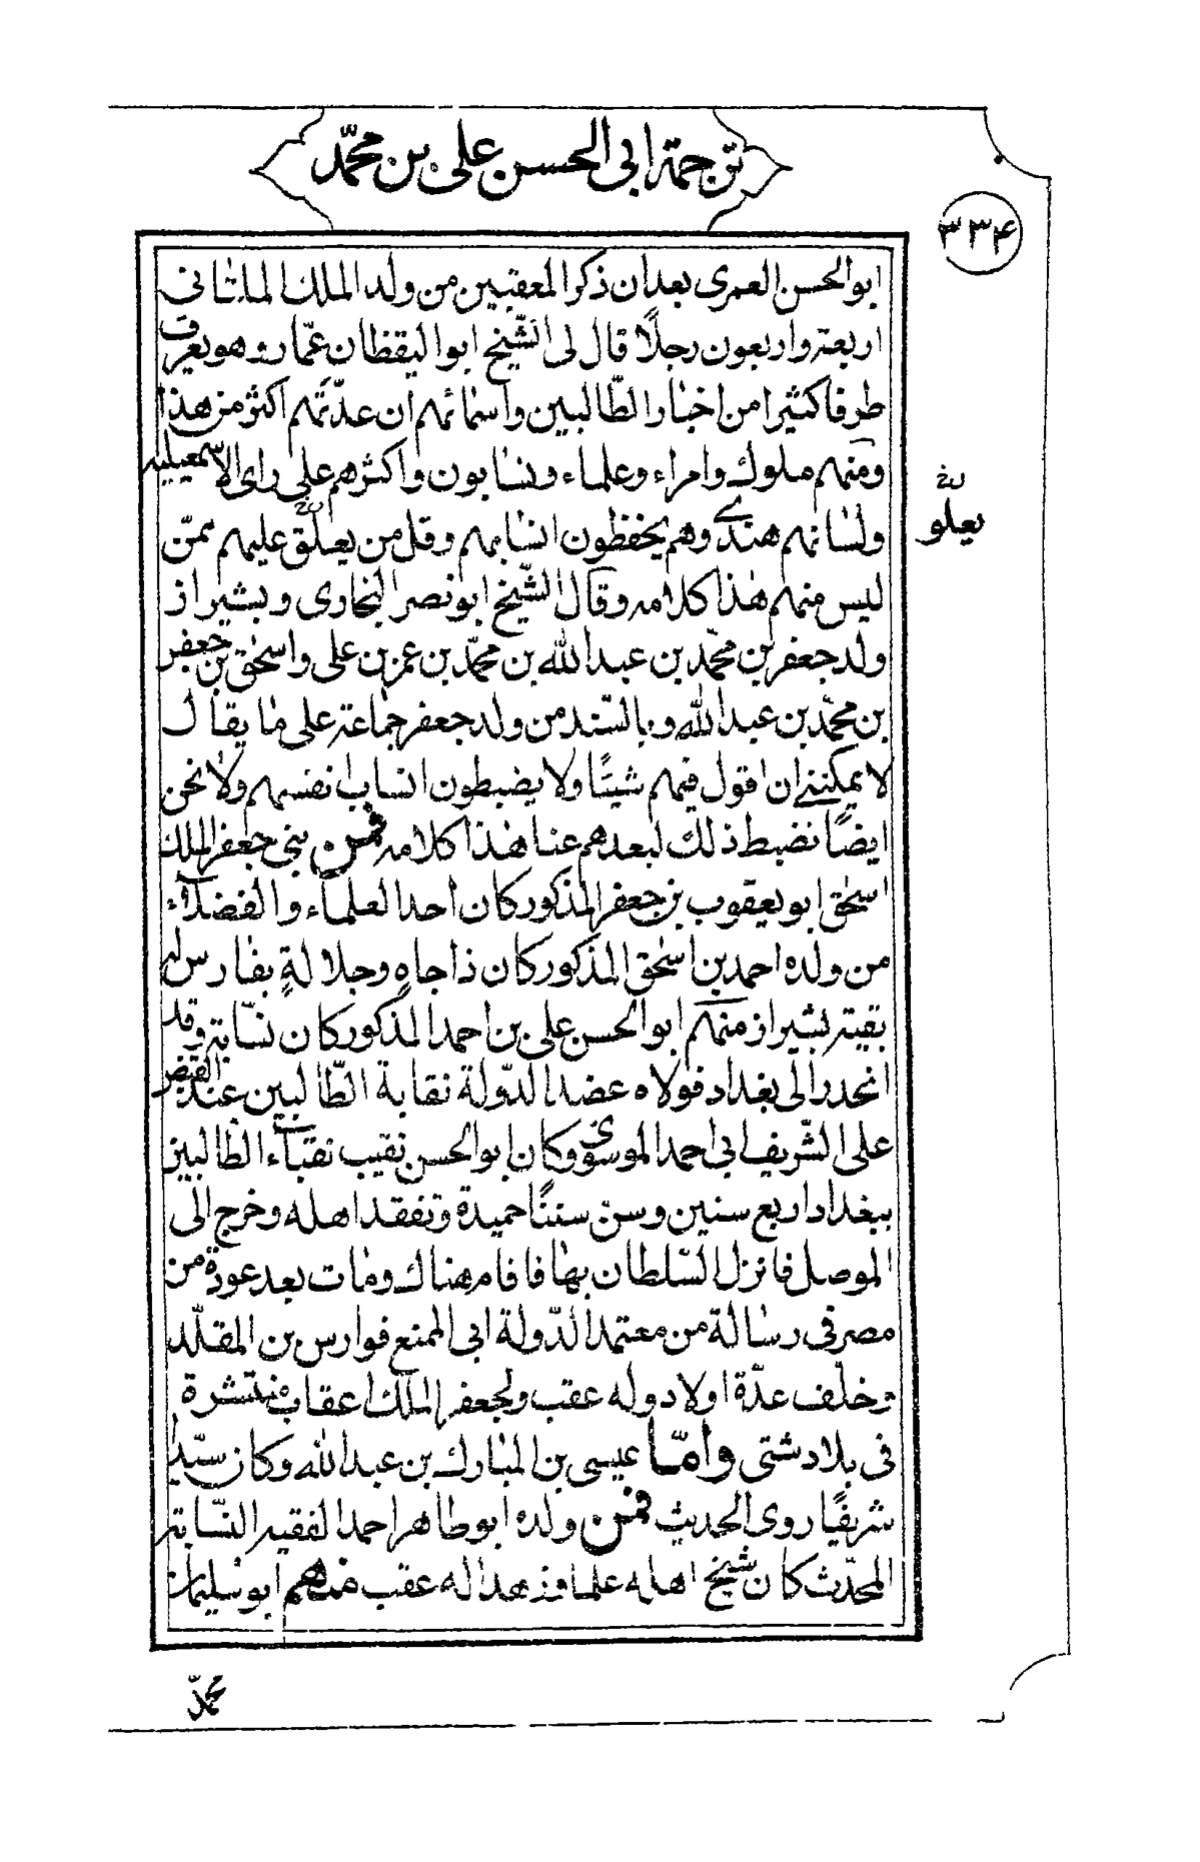 ترجمة ابی الحسن علی بن محمّد
۳۳۴
ابو الحسن العمری بعد ان ذکر المعقبین من ولد الملك الملتانی
اربعة واربعون رجلًا قال لی الشّیخ ابو الیقظان عمّار وهو یعرف
طرفا کثیرا من اخبار الطّالبین واسمائهم ان عدّتهم اکثر من هذا
ومنهم ملوك وامراء وعلماء ونسابون واکثرهم علی رای الاسمعیلیة
ولسانهم هندی وهم یحفظون انسابهم وقل من یعلق علیهم ممّن
لیس منهم هذا کلامه وقال الشّیخ ابو نصر البخاری وبشیراز
ولد جعفر بن محمّد بن عبد الله بن محمّد بن عمر بن علی واسحٰق بن جعفر
بن محمّد بن عبد الله وبالسّند من ولد جعفر جماعة علی ما یقال
لا یمکننی ان اقول فیهم شیئًا ولا یضبطون انساب انفسهم ولا نحن
ایضًا نضبط ذلك لبعدهم عنا هذا کلامه فمن بنی جعفر الملك
اسحٰق ابو یعقوب بن جعفر المذکور کان احد العلماء والفضلاء
من ولده احمد بن اسحٰق المذکور کان ذا جاهٍ وجلالةٍ بفارس له
بقیة بشیراز منهم ابو الحسن علی بن احمد المذکور کان نسّابة وقد
انحدر الی بغداد فولاه عضد الدّولة نقابة الطّالبین عند القبض
علی الشّریف ابی احمد الموسوی وکان ابو الحسن نقیب نقباء الطّالبین
ببغداد اربع سنین وسنّ سننًا حمیدة وتفقد اهله وخرج الی
الموصل فانزل السّلطان بها فاقام هناك ومات بعد عودة من
مصر فی رسالة من معتمد الدّولة ابی المنع فوارس بن المقلّد
وخلف عدّة اولاد وله عقب ولجعفر الملك اعقاب منتشرة
فی بلاد شتی وامّا عیسی بن المبارك بن عبد الله وکان سیّدا
شریفًا روی الحدیث فمن ولده ابو طاهر احمد الفقیه النسّابة
المحدّث کان شیخ اهله علما وزهدا له عقب منهم ابو سلیمان
یعلو
محمّد